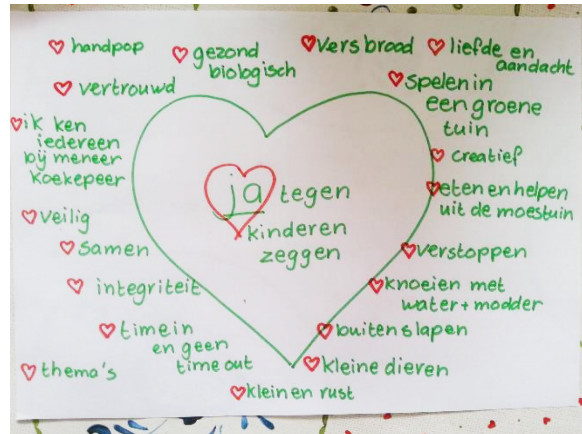 handpop
gezond
biologisch
vers brood
liefde en
aandacht
vertrouwd
spelen in
een groene
tuin
ik ken
iedereen
bij meneer
koekepeer
creatief
ja tegen
kinderen
zeggen
eten en helpen
uit de moestuin
veilig
samen
verstoppen
integriteit
knoeien met
water + modder
time in
en geen
time out
buiten slapen
thema's
kleine dieren
klein en rust